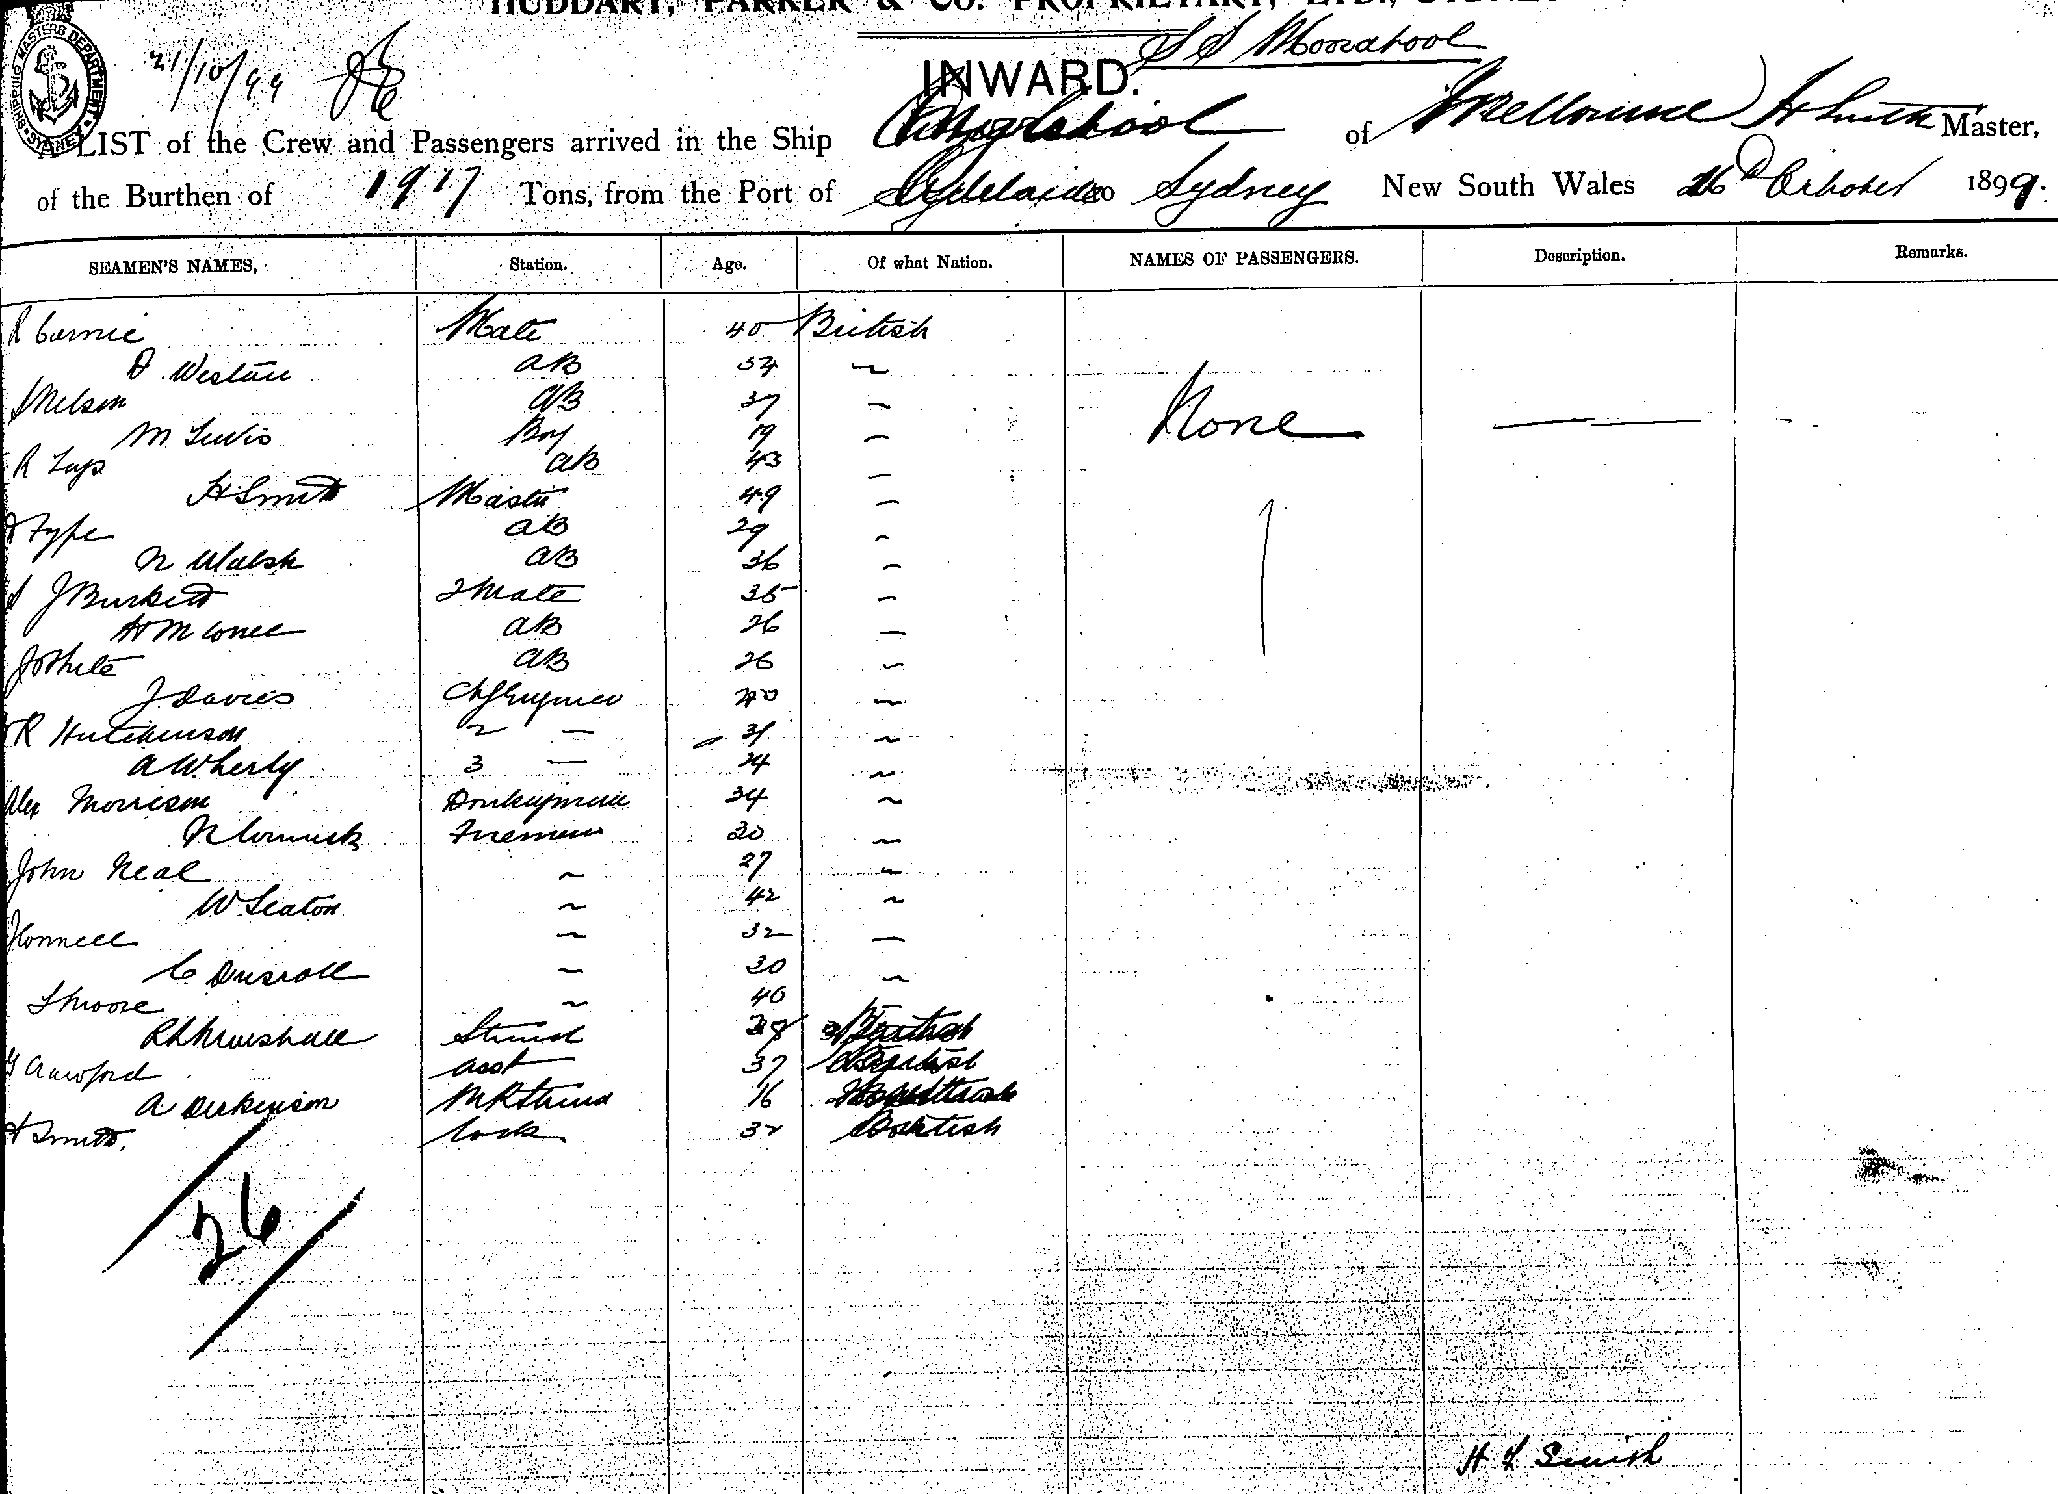 HUDDART, PARKER & CO. PROPRIETARY, LTD., SYDNEY
SS Moorabool
21/10/99
INWARD.
A LIST of the Crew and Passengers arrived in the Ship Moorabool of Melbourne H Smith Master,
of the Burthen of 1917 Tons, from the Port of Adelaide to Sydney New South Wales 26 October 1899.
SEAMEN'S NAMES, Station. Age. Of what Nation. NAMES OF PASSENGERS. Description. Remarks.
R Carnie Mate 40 British
D AB 54 ~
Nelson AB 37 ~ None —
M Lewis Boy 19 ~
R AB 43 ~
H Smith Master 49 ~
Fype AB 29 ~
N Walsh AB 36 ~
J Burkett 2 Mate 35 ~
AB 26 —
J White AB 26 ~
J Davies 40 ~
R Hutchinson 2 — 31 ~
A Wherly 3 — 24 ~
Alex Morrison Donkeyman 34 ~
Fireman 30 ~
John Neal ~ 27 ~
W Seaton ~ 42 ~
~ 32 —
C Driscoll ~ 30 ~
Moore ~ 40
Marshall 28 British
G Crawford asst 37
A Dickinson 16
H Smith. Cook 32 British
26
H L Smith